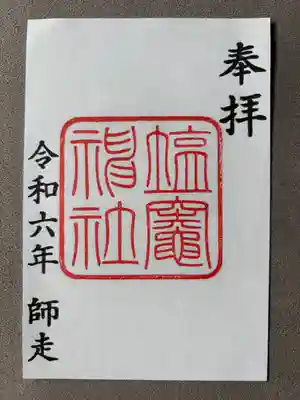 奉拝
塩竈
神社
令和六年 師走